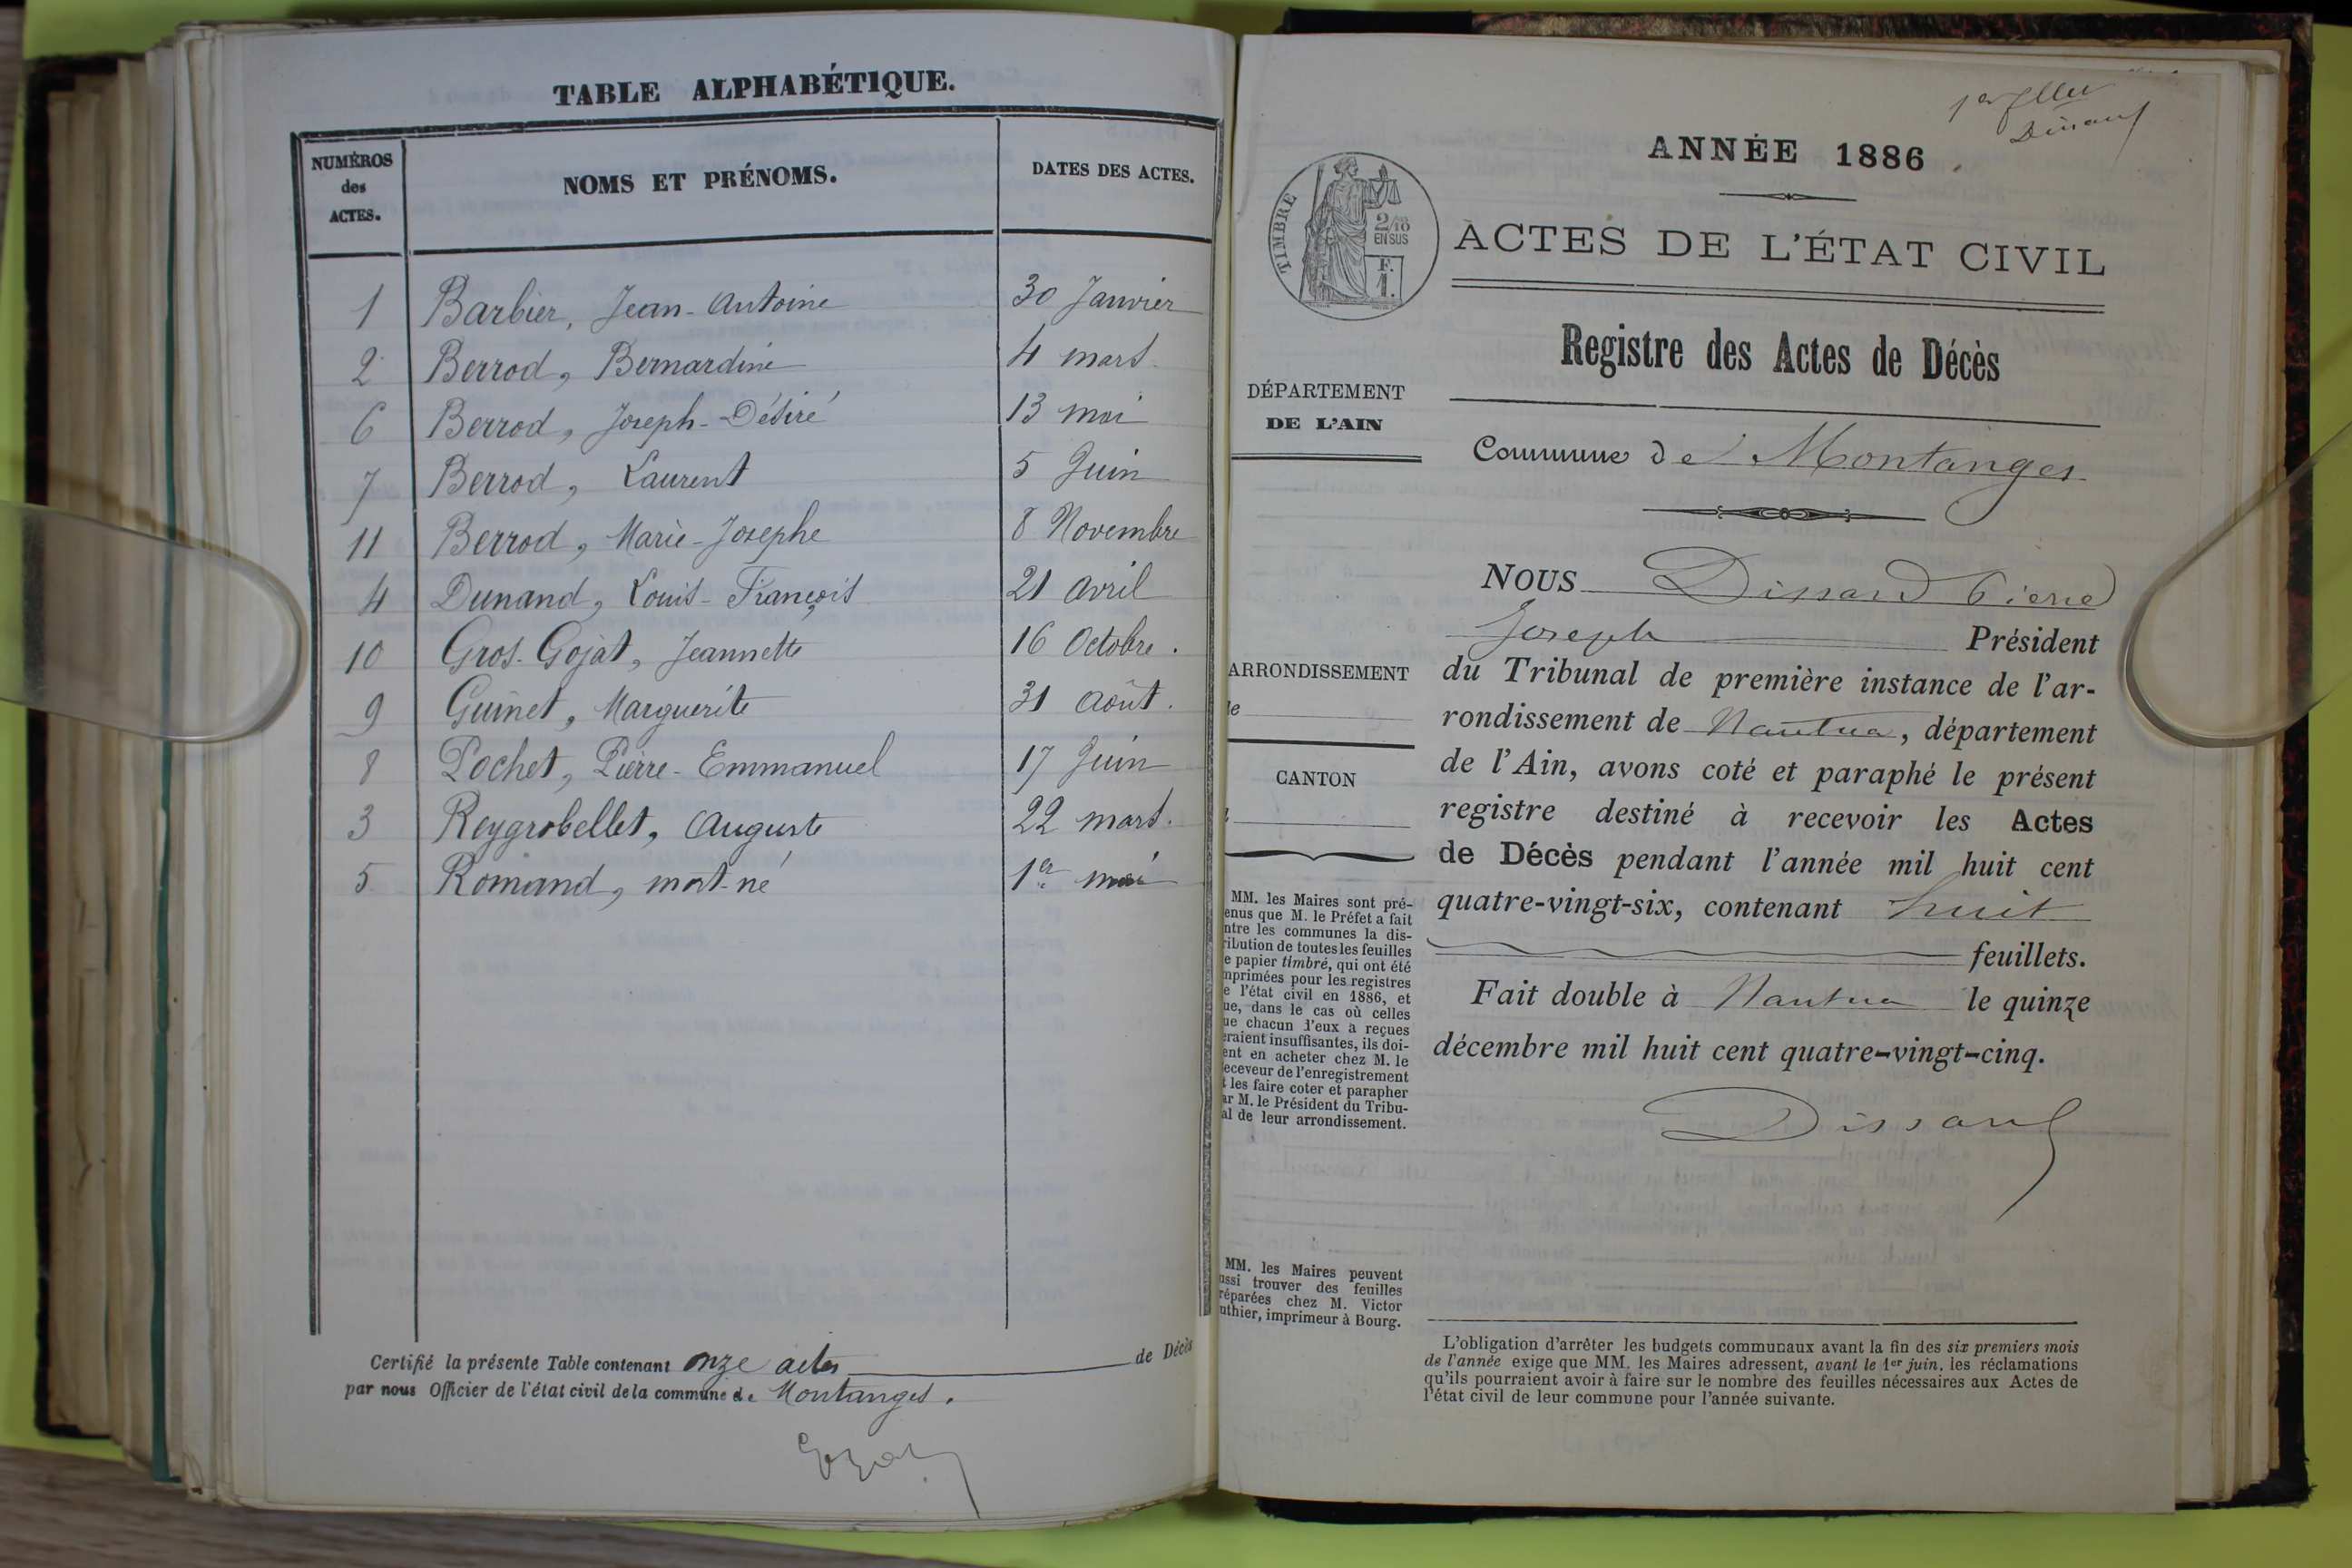 TABLE ALPHABÉTIQUE.
NUMÉROS
des
ACTES.
NOMS ET PRÉNOMS.
DATES DES ACTES.
1 Barbier, Jean-Antoine 30 Janvier
2 Berrod, Bernardine 4 mars.
6 Berrod, Joseph-Désiré 13 mai
7 Berrod, Laurent 5 Juin
11 Berrod, Marie-Josephe 8 Novembre
4 Dunand, Louis-François 21 avril
10 Gros-Gojat, Jeannette 16 Octobre.
9 Guinet, Marguerite 31 Août.
8 Pochet, Pierre-Emmanuel 17 Juin
3 Reygrobellet, Auguste 22 mars.
5 Romand, mort-né 1er mai
Certifié la présente Table contenant onze actes de Décès
par nous Officier de l'état civil de la commune de Montanges.
ANNÉE 1886
TIMBRE
2/10
EN SUS
F.
1.
ACTES DE L'ÉTAT CIVIL
Registre des Actes de Décès
DÉPARTEMENT
DE L'AIN
Commune de Montanges
NOUS Dissard Pierre
Joseph Président
du Tribunal de première instance de l'ar-
rondissement de Nantua, département
de l'Ain, avons coté et paraphé le présent
registre destiné à recevoir les Actes
de Décès pendant l'année mil huit cent
quatre-vingt-six, contenant huit
feuillets.
Fait double à Nantua le quinze
décembre mil huit cent quatre-vingt-cinq.
Dissard
ARRONDISSEMENT
CANTON
MM. les Maires sont pré-
enus que M. le Préfet a fait
ntre les communes la dis-
ribution de toutes les feuilles
e papier timbré, qui ont été
mprimées pour les registres
e l'état civil en 1886, et
ue, dans le cas où celles
ue chacun d'eux a reçues
eraient insuffisantes, ils doi-
ent en acheter chez M. le
eceveur de l'enregistrement
t les faire coter et parapher
ar M. le Président du Tribu-
al de leur arrondissement.
MM. les Maires peuvent
ussi trouver des feuilles
réparées chez M. Victor
uthier, imprimeur à Bourg.
L'obligation d'arrêter les budgets communaux avant la fin des six premiers mois
de l'année exige que MM. les Maires adressent, avant le 1er juin, les réclamations
qu'ils pourraient avoir à faire sur le nombre des feuilles nécessaires aux Actes de
l'état civil de leur commune pour l'année suivante.